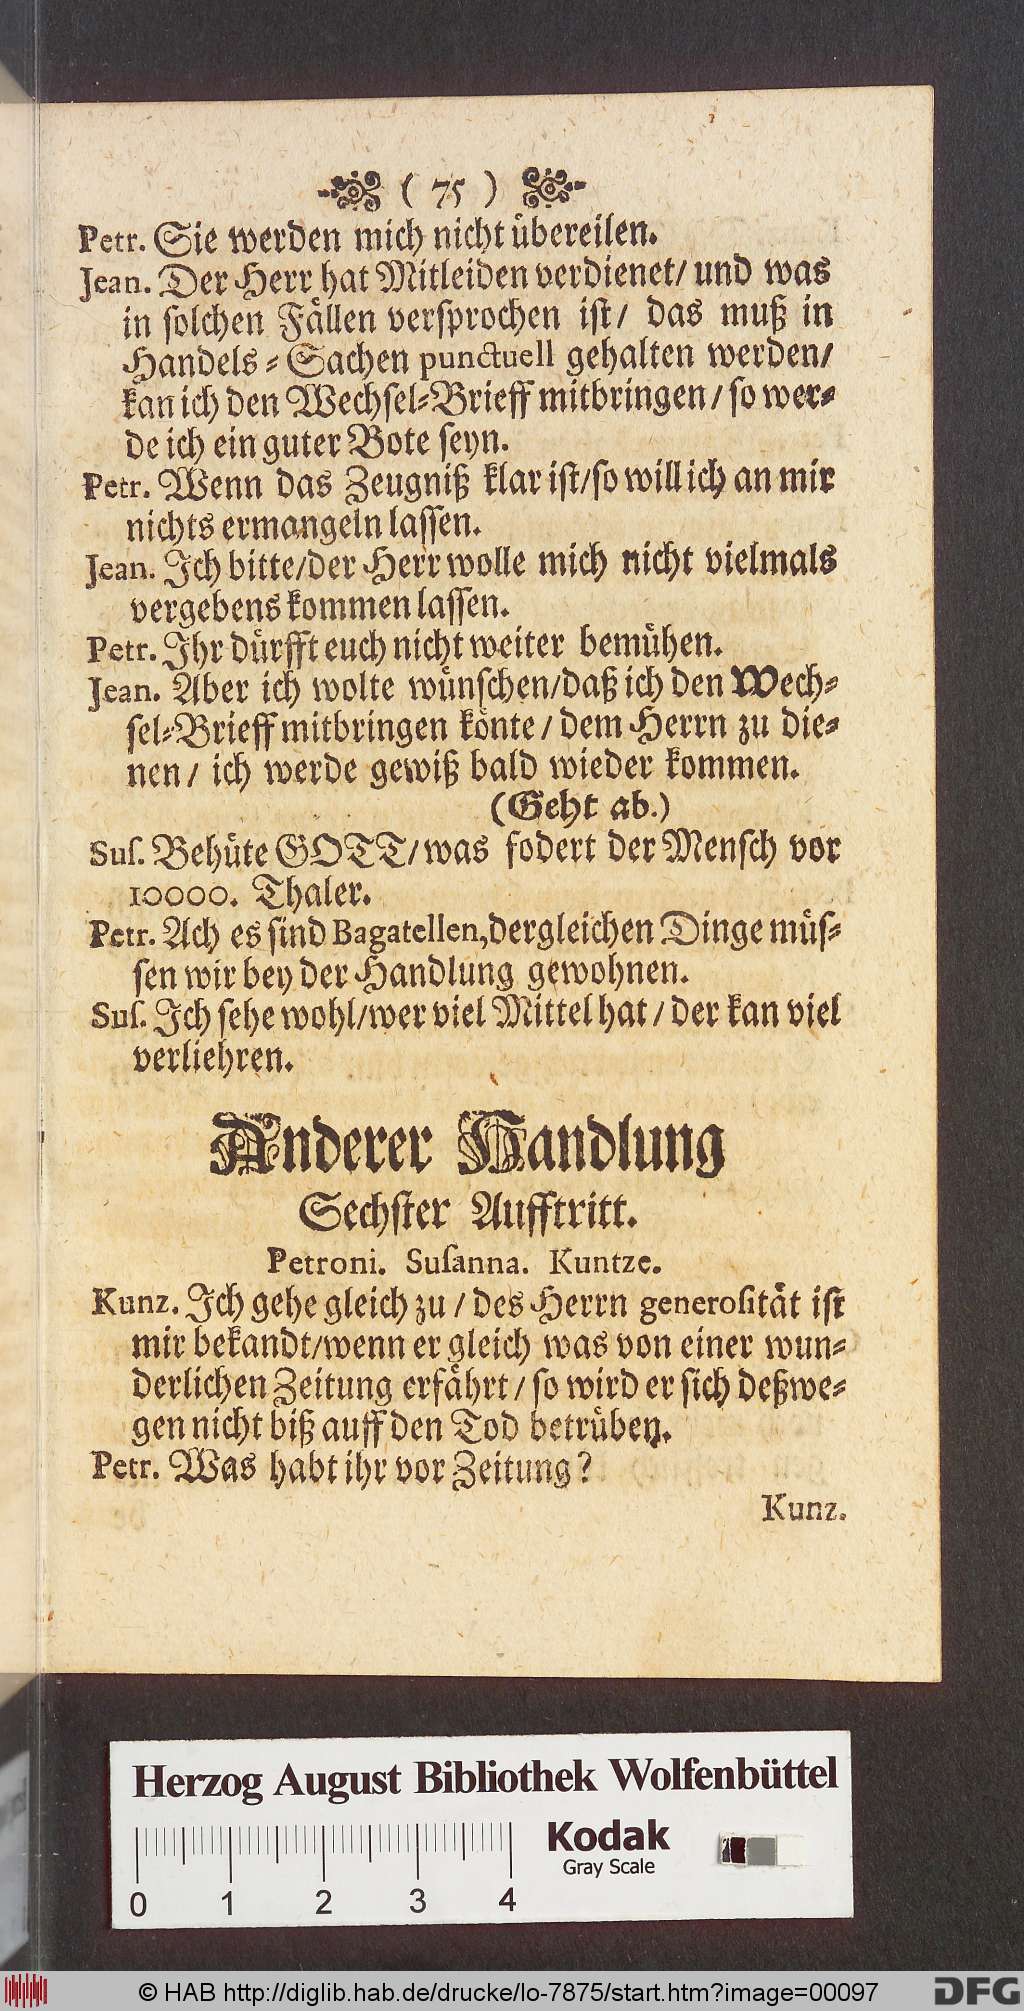 ( 75 )
Petr. Sie werden mich nicht uͤbereilen.
Jean. Der Herr hat Mitleiden verdienet/ und was
in solchen Faͤllen versprochen ist/ das muß in
Handels-Sachen punctuell gehalten werden/
kan ich den Wechsel-Brieff mitbringen/ so wer-
de ich ein guter Bote seyn.
Petr. Wenn das Zeugniß klar ist/ so will ich an mir
nichts ermangeln lassen.
Jean. Ich bitte/ der Herr wolle mich nicht vielmals
vergebens kommen lassen.
Petr. Ihr duͤrfft euch nicht weiter bemuͤhen.
Jean. Aber ich wolte wuͤnschen/ daß ich den Wech-
sel-Brieff mitbringen koͤnte/ dem Herrn zu die-
nen/ ich werde gewiß bald wieder kommen.
(Geht ab.)
Sus. Behuͤte GOTT/ was fodert der Mensch vor
10000. Thaler.
Petr. Ach es sind Bagatellen, dergleichen Dinge muͤs-
sen wir bey der Handlung gewohnen.
Sus. Ich sehe wohl/ wer viel Mittel hat/ der kan viel
verliehren.
Anderer Handlung
Sechster Aufftritt.
Petroni. Susanna. Kuntze.
Kunz. Ich gehe gleich zu/ des Herrn generositaͤt ist
mir bekandt/ wenn er gleich was von einer wun-
derlichen Zeitung erfaͤhrt/ so wird er sich deßwe-
gen nicht biß auff den Tod betruͤben.
Petr. Was habt ihr vor Zeitung?
Kunz.
Herzog August Bibliothek Wolfenbüttel
Kodak
Gray Scale
0 1 2 3 4
© HAB http://diglib.hab.de/drucke/lo-7875/start.htm?image=00097
DFG